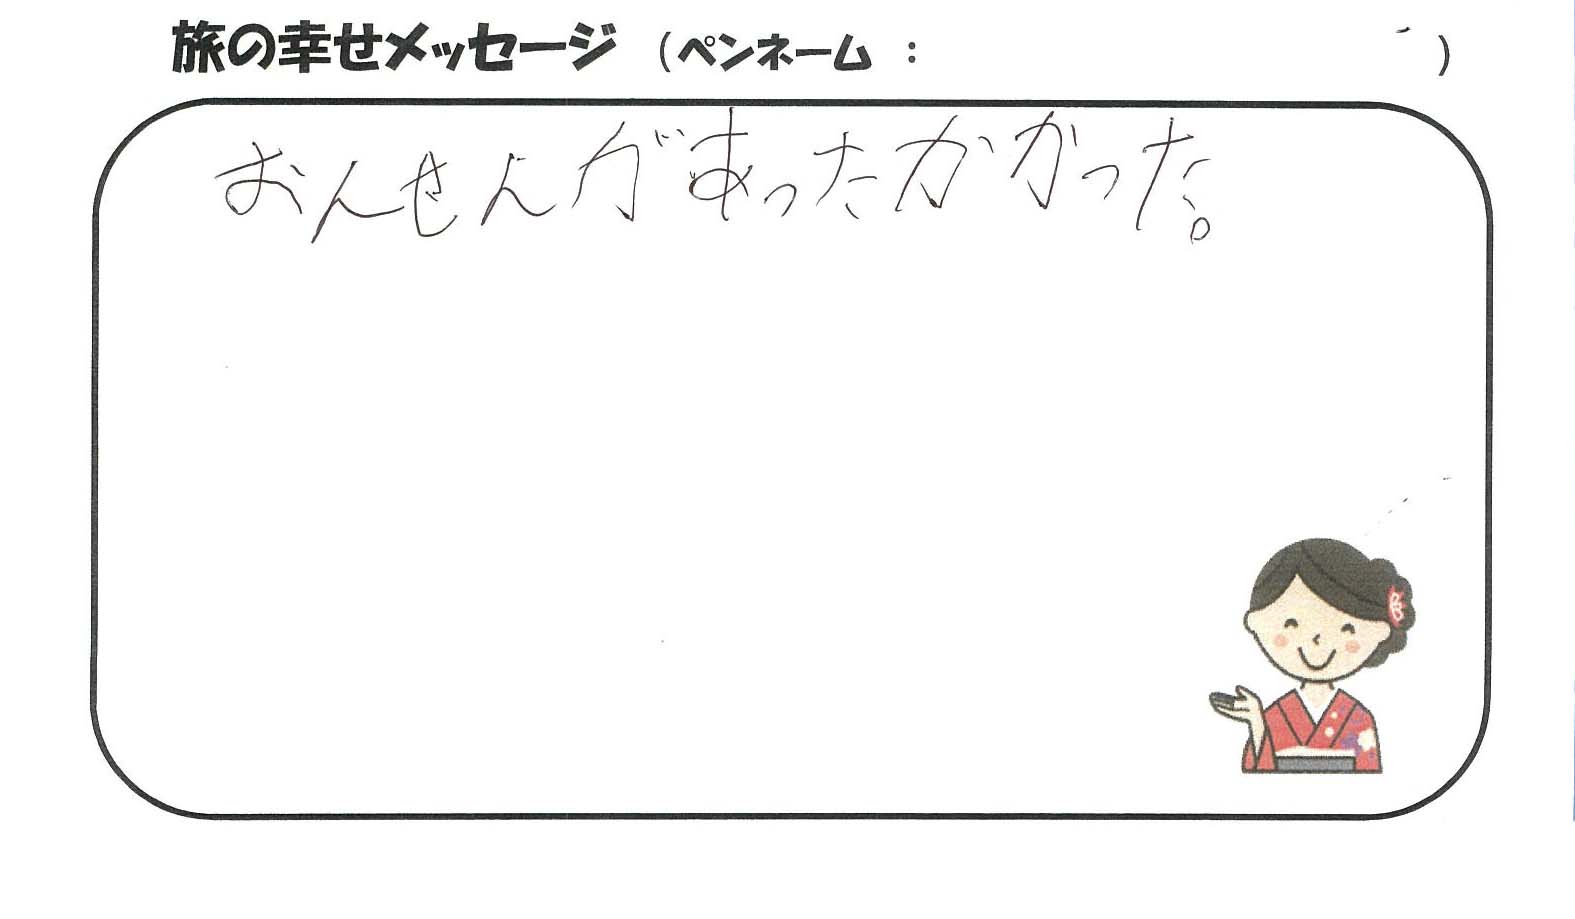 旅の幸せメッセージ (ペンネーム : )
おんせんがあったかかった。